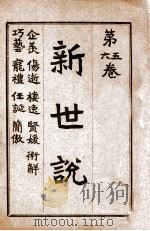 第五六卷
新世說
企羨 傷逝 棲逸 賢媛 術解
巧藝 寵禮 任誕 簡傲